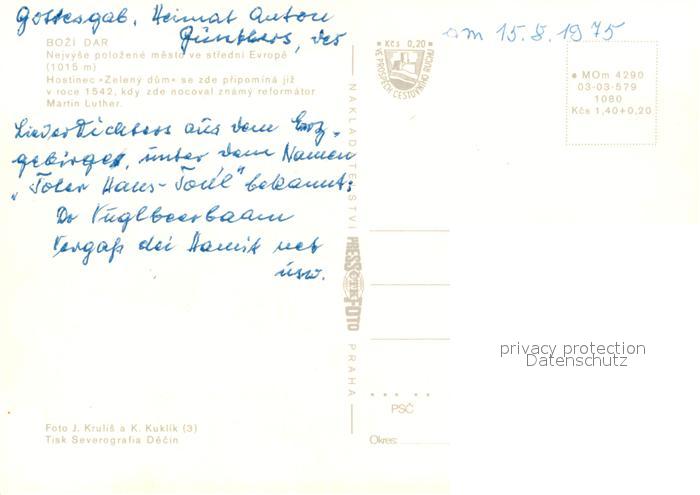 Gottesgab, Heimat Anton
Günthers, des
am 15.8.1975
BOŽÍ DAR
Nejvýše položené město ve střední Evropě
(1015 m)
Hostinec »Zelený dům« se zde připomíná již
v roce 1542, kdy zde nocoval známý reformátor
Martin Luther.
Liederdichters aus dem Erz-
gebirge, unter dem Namen
„Toler Hans-Tonl" bekannt:
Dr Vuglbeerbaam
Vergaß dei Hamit net
usw.
Foto J. Kruliš a K. Kuklík (3)
Tisk Severografia Děčín
NAKLADATELSTVÍ PRESSFOTO PRAHA
ČTK
Kčs 0,20
VE PROSPĚCH CESTOVNÍHO RUCHU
MOm 4290
03-03-579
1080
Kčs 1,40+0,20
privacy protection
Datenschutz
PSČ
Okres: